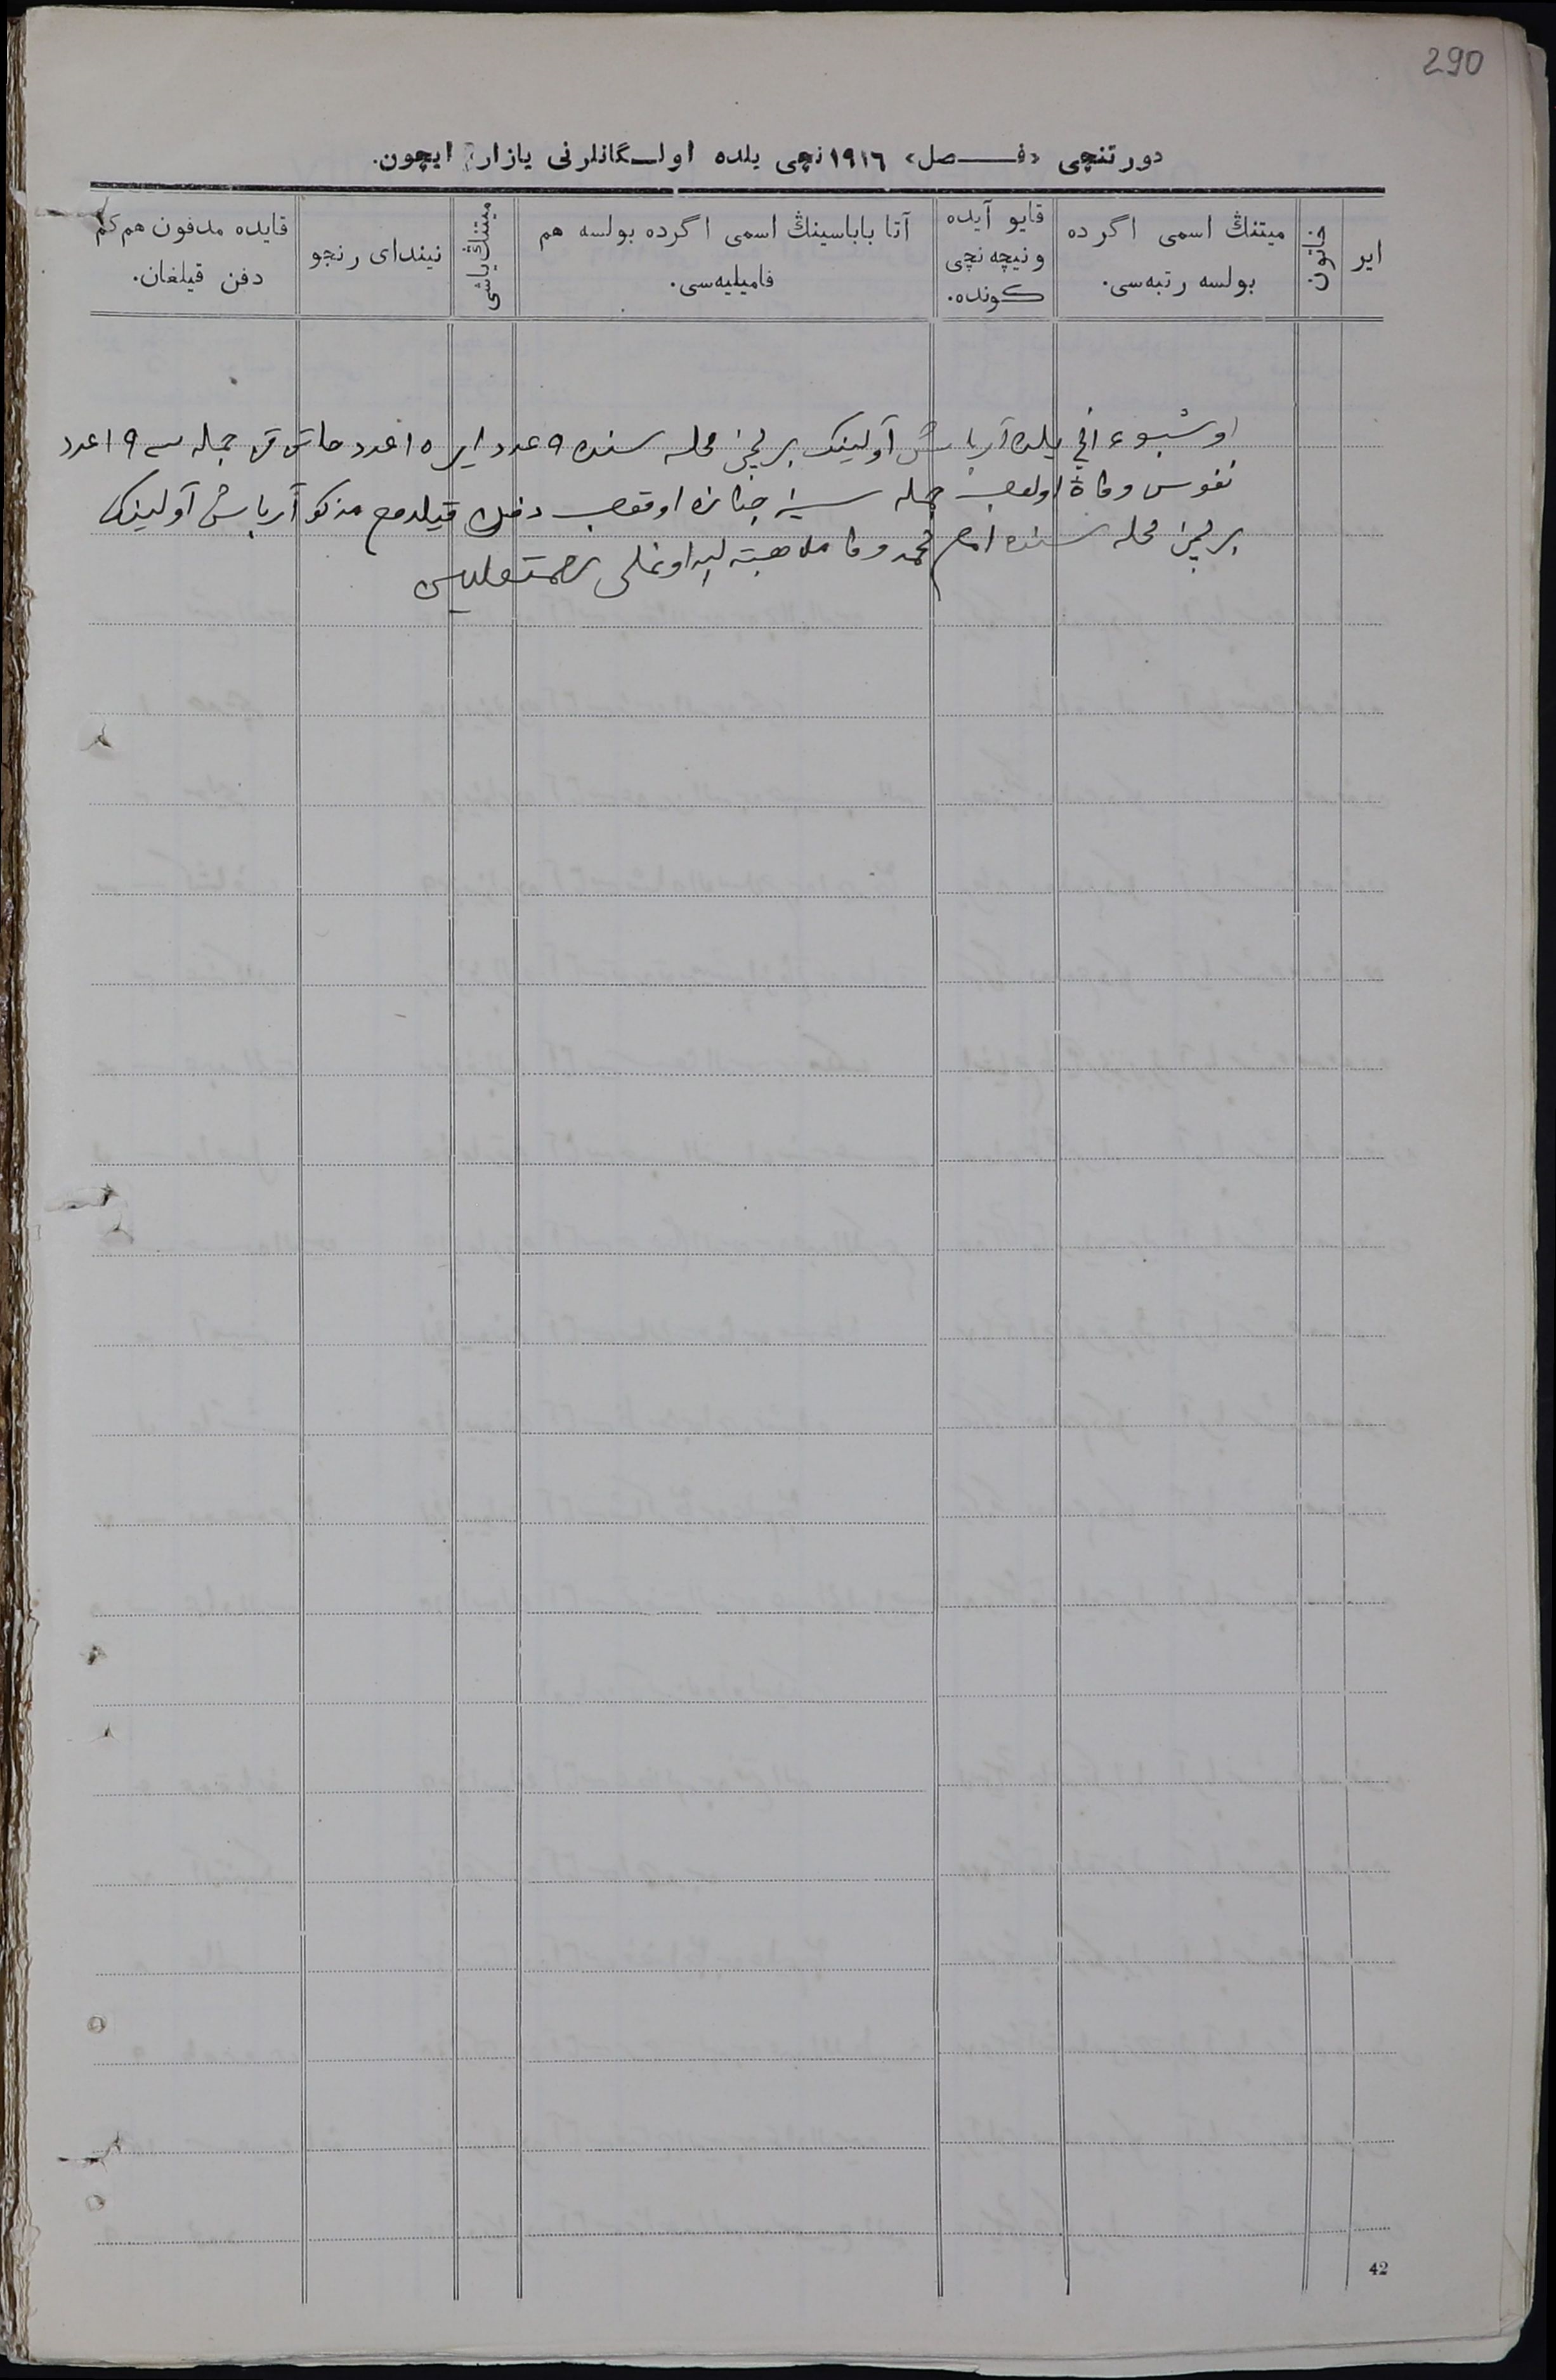 290
دورتنچی «فـــصل» ١٩١٦ نچی یلده اولـگانلرنی یازار ایچون.
ایر
خاتون
میتنڭ اسمی اگر ده
بولسه رتبه‌سی.
قایو آیده
و نیچه نچی
کونده.
آتا باباسینڭ اسمی اگرده بولسه هم
فامیلیه‌سی.
میتنڭ یاشی
نیندای رنجو
قایده مدفون هم کم
دفن قیلغان.
اوشبو یلده آرباش آولینک برنچی محله سنده ٩ عدد ایر ١٥ عدد جمله سی ١٩ عدد
نفوس وفاة اولوب جمله سینه جنازه اوقوب دفن قیلدم مذکور آرباش آولینک
برنچی محله سنده امام محمد وفا ملا هبته الله اوغلی
42